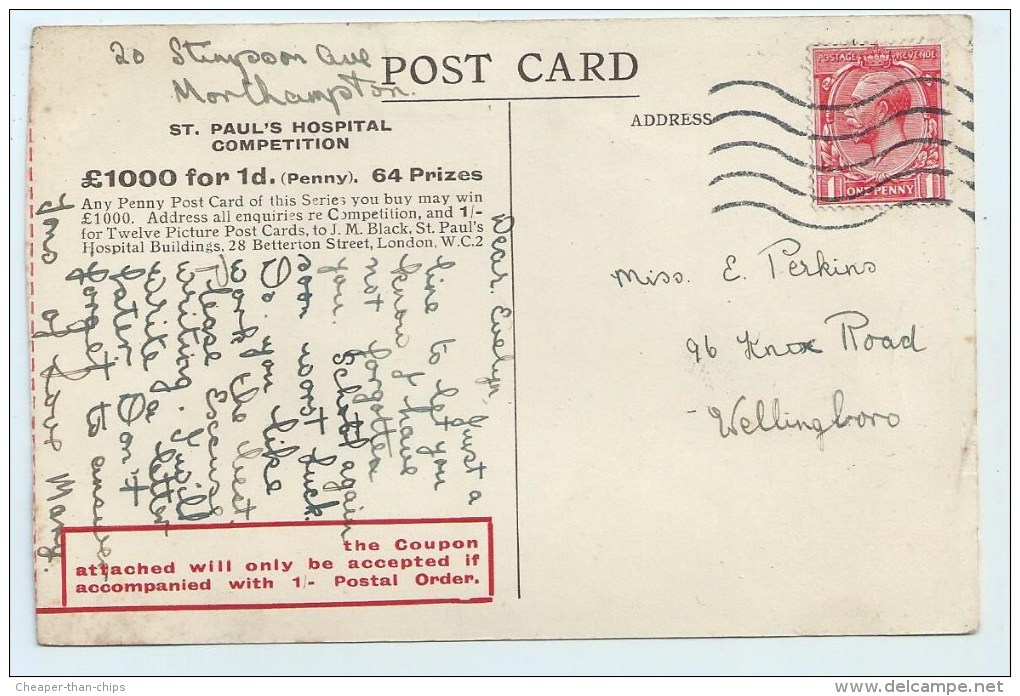 20 Stimpson Ave
Northampton.
POST CARD
ST. PAUL'S HOSPITAL
COMPETITION
£1000 for 1d. (Penny). 64 Prizes
Any Penny Post Card of this Series you buy may win
£1000. Address all enquiries re Competition, and 1/-
for Twelve Picture Post Cards, to J. M. Black, St. Paul's
Hospital Buildings, 28 Betterton Street, London, W.C.2
Dear Evelyn,
Just a
line to let you
know I have
not forgotten
you. School again
soon worst luck.
Do you like
work the best.
Please Excuse
writing. I will
write a letter
later Don't
forget to answer
Tons of Love Mary.
the Coupon
attached will only be accepted if
accompanied with 1/- Postal Order.
ADDRESS
POSTAGE REVENUE
1 ONE PENNY 1
Miss. E. Perkins
96 Knox Road
Wellingboro
Cheaper-than-chips
www.delcampe.net